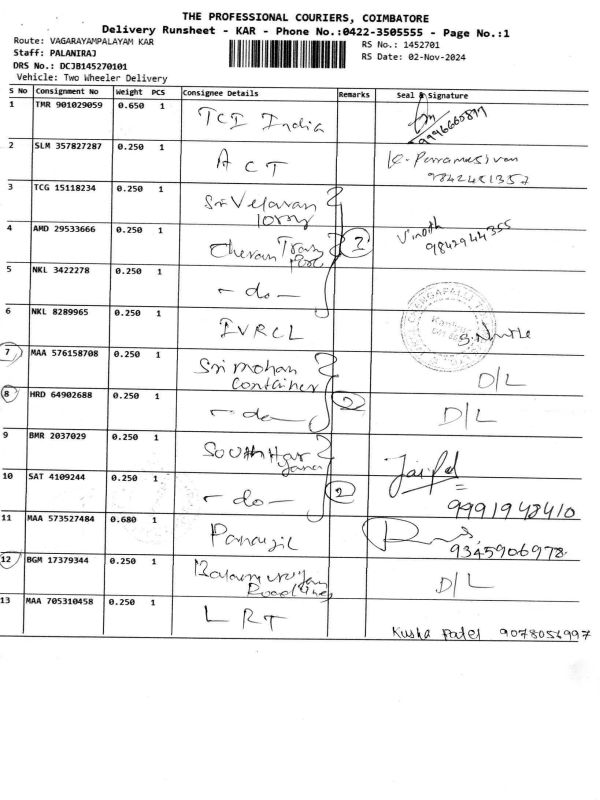 THE PROFESSIONAL COURIERS, COIMBATORE
Delivery Runsheet - KAR - Phone No.:0422-3505555 - Page No.:1
Route: VAGARAYAMPALAYAM KAR
RS No.: 1452701
Staff: PALANIRAJ
RS Date: 02-Nov-2024
DRS No.: DCJB145270101
Vehicle: Two Wheeler Delivery
S No Consignment No Weight PCS Consignee Details Remarks Seal & Signature
1 TMR 901029059 0.650 1 TCI India
2 SLM 357827287 0.250 1 ACT
9842481357
3 TCG 15118234 0.250 1 Sri Velavan
lorry
4 AMD 29533666 0.250 1 Cheran Tran
port 3 Vinoth
9842944355
5 NKL 3422278 0.250 1 - do -
6 NKL 8289965 0.250 1 IVRCL
7 MAA 576158708 0.250 1 Sri mohan
Container D/L
8 HRD 64902688 0.250 1 - do - 2 D/L
9 BMR 2037029 0.250 1 South Har
yana
10 SAT 4109244 0.250 1 - do - 2 Jaipal
9991948410
11 MAA 573527484 0.680 1
9345906978
12 BGM 17379344 0.250 1 Balamurugan
Road lines D/L
13 MAA 705310458 0.250 1 LRT
Kusha Patel 9078056997